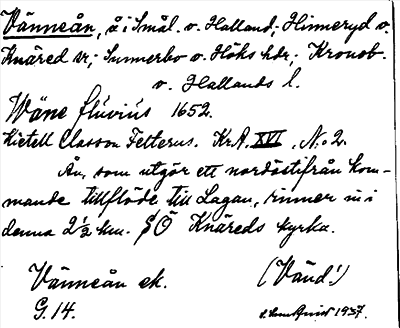 Vänneån, å i Smål. o. Halland; Hinneryd o.
Knäred sr; Sunnerbo o. Höks hdr; Kronob.
o. Hallands l.
Wäne fluvius 1652.
Kietell Classon Felterus. Kr.A. XVI, No 2.
Ån, som utgör ett nordöstifrån kom-
mande tillflöde till Lagan, rinner in i
denna 2 1/2 km. SÖ Knäreds kyrka.
Vänneån ek. (Vänd!)
G. 14. 1937.